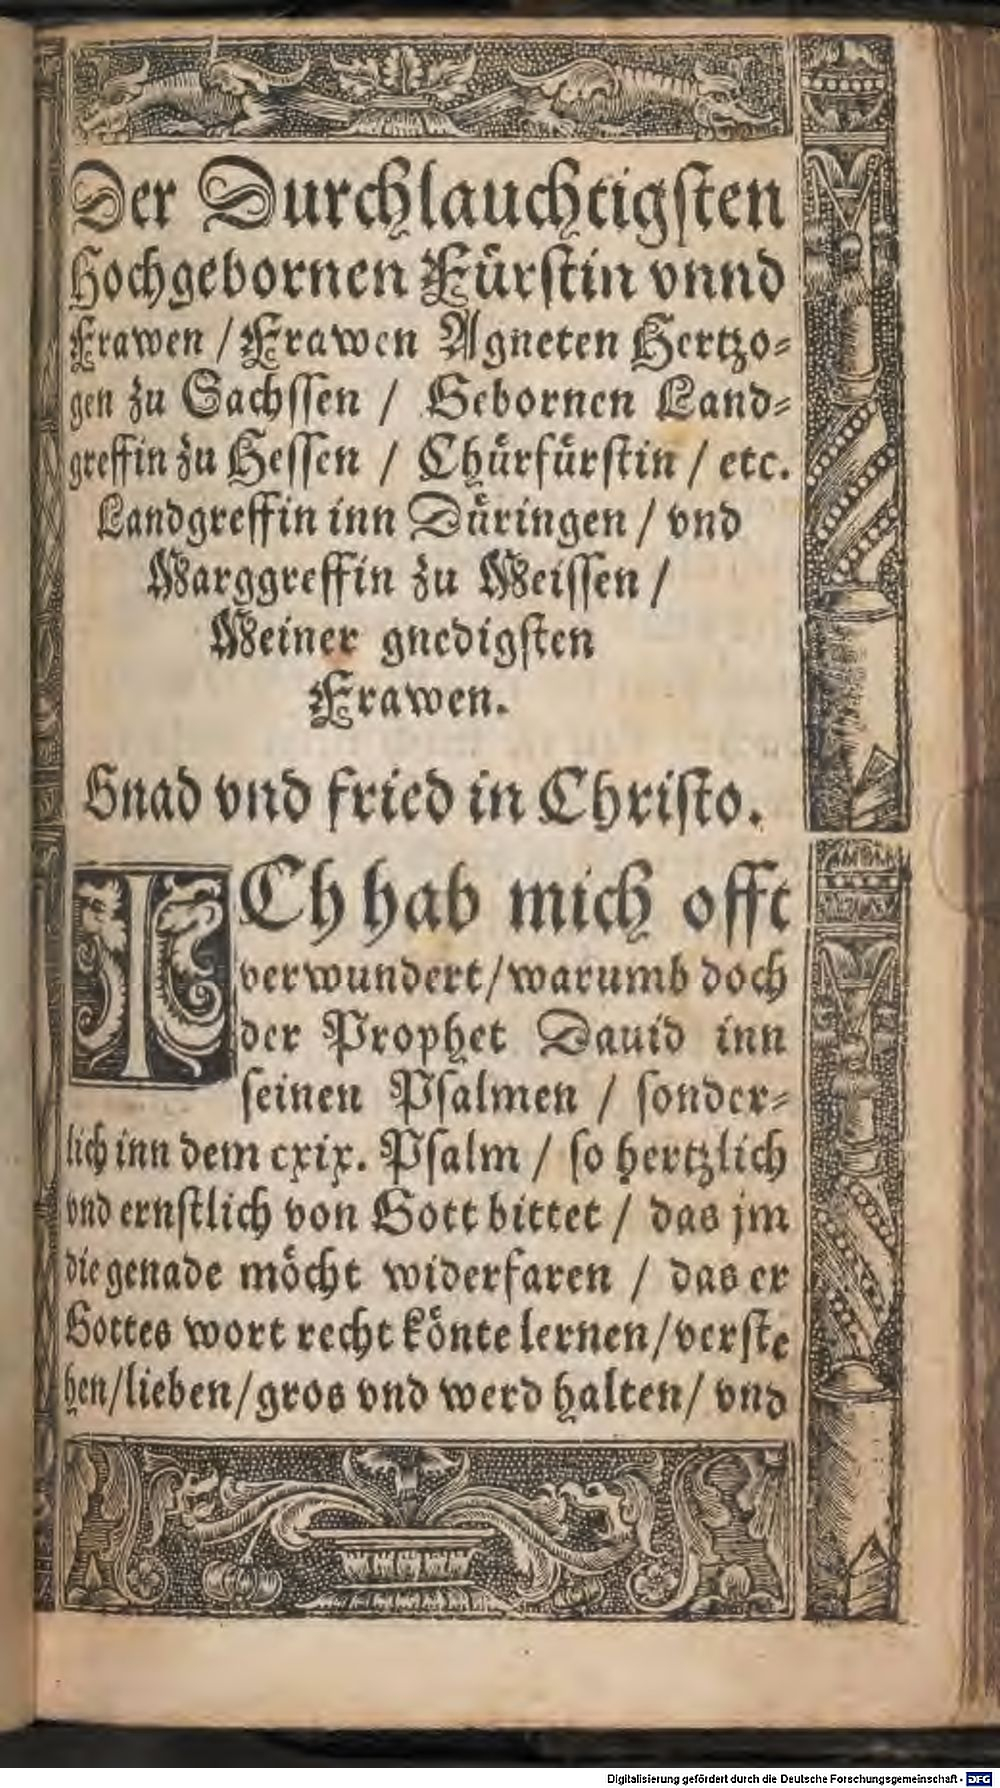 Der Durchlauchtigſten
Hochgebornen Fürſtin vnnd
Frawen / Frawen Agneten Hertzo⸗
gen zu Sachſſen / Gebornen Land⸗
greffin zu Heſſen / Chuͤrfuͤrſtin / etc.
Landgreffin inn Duͤringen / vnd
Marggreffin zu Meiſſen /
Meiner gnedigſten
Frawen.
Gnad vnd fried in Chriſto.
ICh hab mich offt
verwundert / warumb doch
der Prophet Dauid inn
ſeinen Pſalmen / ſonder⸗
lich inn dem cxix. Pſalm / ſo hertzlich
vnd ernſtlich von Gott bittet / das jm
die genade moͤcht widerfaren / das er
Gottes wort recht koͤnte lernen / verſte
hen / lieben / gros vnd werd halten / vnd
Digitalisierung gefördert durch die Deutsche Forschungsgemeinschaft - DFG